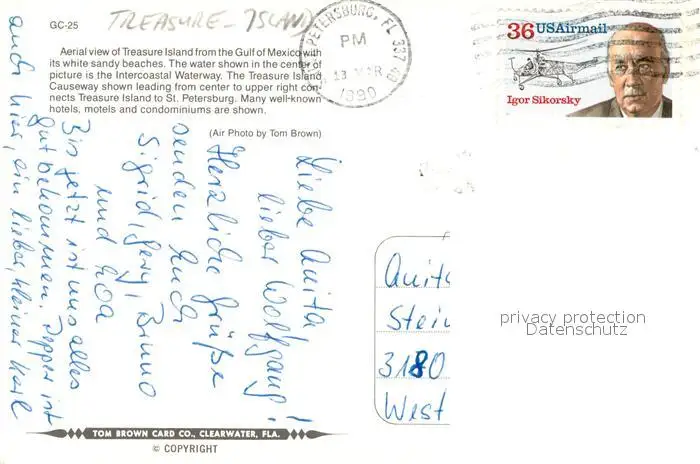 GC-25
TREASURE-ISLAND
Aerial view of Treasure Island from the Gulf of Mexico with
its white sandy beaches. The water shown in the center of
picture is the Intercoastal Waterway. The Treasure Island
Causeway shown leading from center to upper right con-
nects Treasure Island to St. Petersburg. Many well-known
hotels, motels and condominiums are shown.
(Air Photo by Tom Brown)
PETERSBURG, FL 337
PM
13
1990
36 USAirmail
Igor Sikorsky
Liebe Anita
lieber Wolfgang!
Herzliche Grüße
senden Euch
Sigrid, Gery, Bruno
und
Bis jetzt ist uns alles
gut bekommen. Pepper ist
auch hier, ein lieber, kleiner Kerl
Anita
Stein
3180
West
privacy protection
Datenschutz
TOM BROWN CARD CO., CLEARWATER, FLA.
© COPYRIGHT